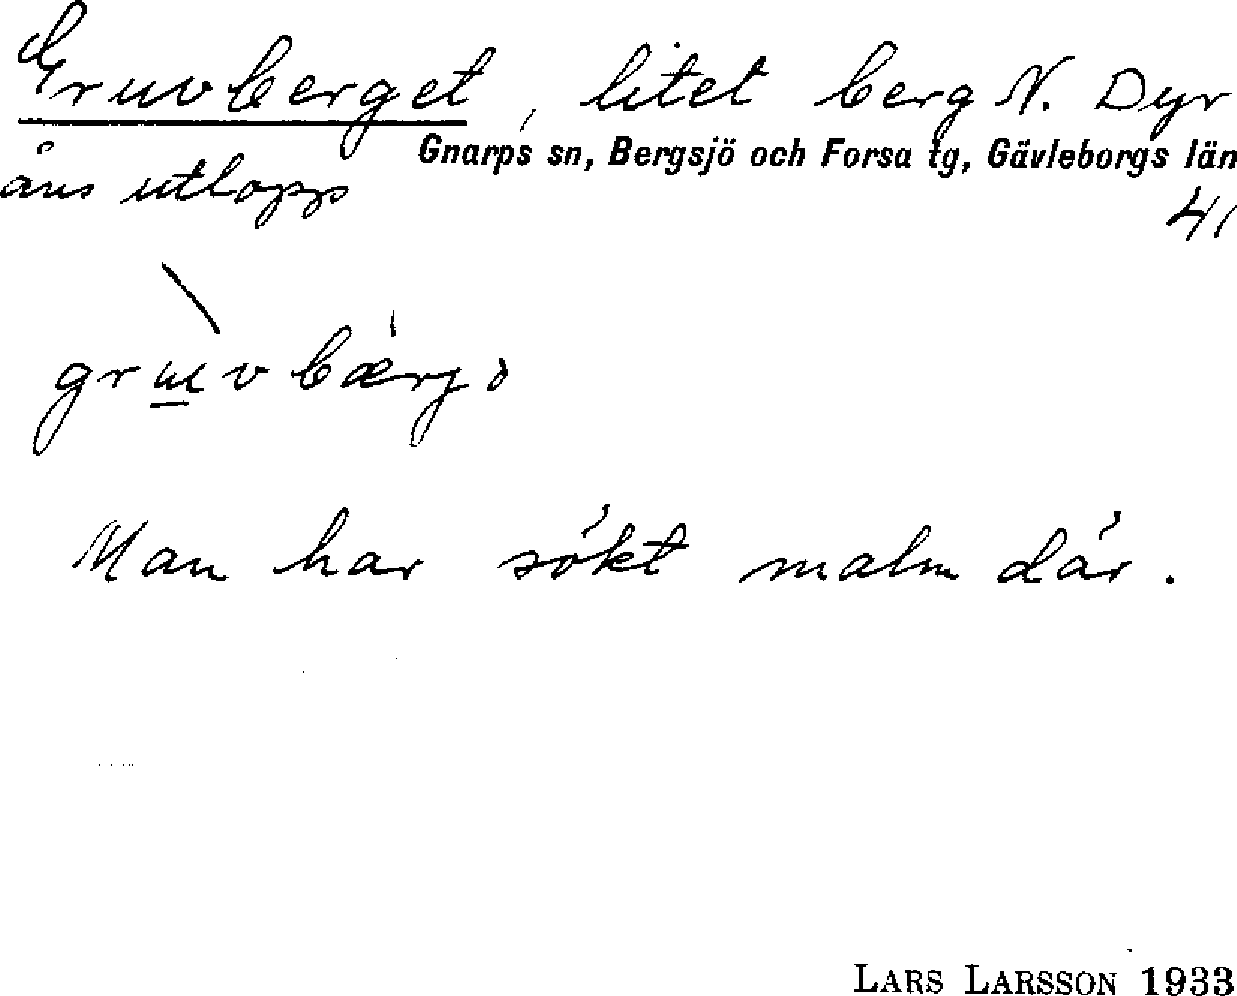 Gruvberget, litet berg N. Dyr
Gnarps sn, Bergsjö och Forsa tg, Gävleborgs län
åns utlopp
41
Man har sökt malm där.
LARS LARSSON 1933